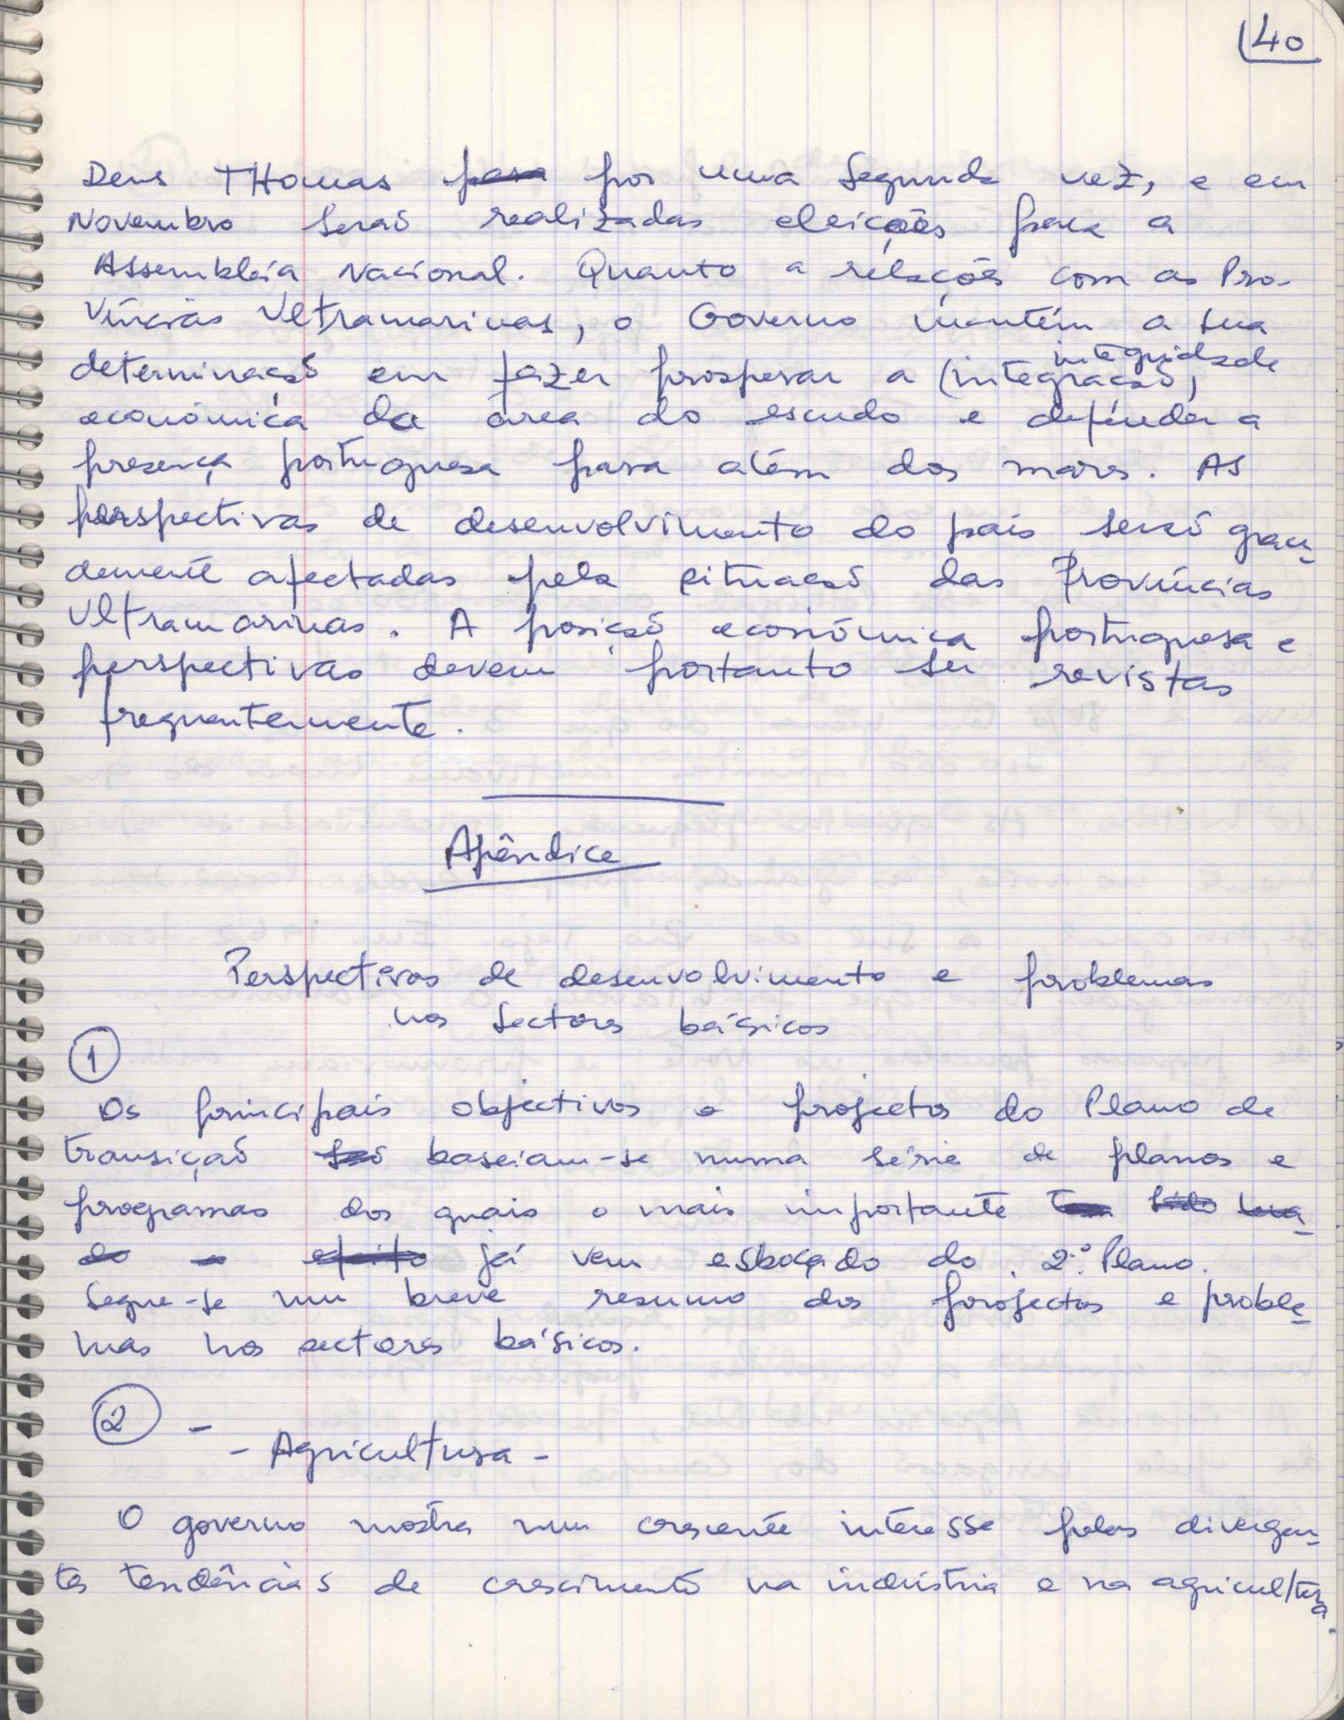 40
Deus THomas para por uma segunda vez, e em
Novembro serão realizadas eleições para a
Assembleia Nacional. Quanto a relações com as Pro-
víncias Ultramarinas, o Governo mantém a sua
integridade
determinação em fazer prosperar a (integração)
económica da área do escudo e defender a
presença portuguesa para além dos mares. AS
perspectivas de desenvolvimento do país serão gran-
demente afectadas pela situação das Províncias
Ultramarinas. A posição económica portuguesa e
perspectivas devem portanto ser revistas
frequentemente.
Apêndice
Perspectivas de desenvolvimento e problemas
nos sectores básicos
1
Os principais objectivos e projectos do Plano de
transição são baseiam-se numa série de planos e
programas dos quais o mais importante tem sido leva
do a efeito já vem esboçado do 2.º Plano.
Segue-se um breve resumo dos projectos e proble-
mas nos sectores básicos.
2 -
- Agricultura -
O governo mostra um crescente interesse pelas divergen-
tes tendências de crescimento na indústria e na agricultura.